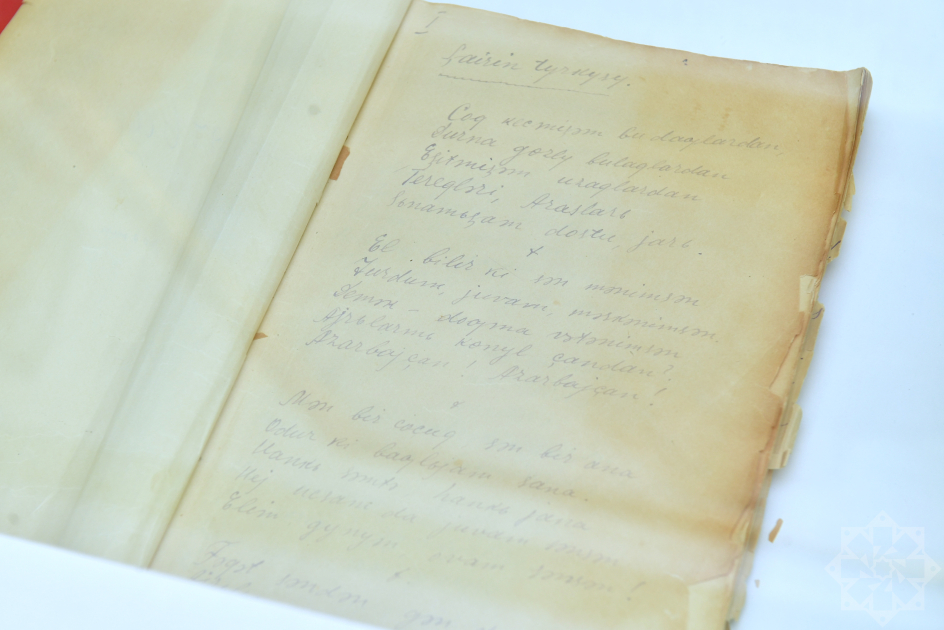 I
Şairin tyrkysy.
Coq kecmişəm bu daqlardan,
Durna gɵzly bulaqlardan
Eşitmişəm uzaqlardan
Tereqləri, Arazlarь
Sьnamьşam dostu, jarь.
+
El bilir ki sən mənimsən
Jurdum, juvam, məskənimsən.
Demək - doqma vətənimsən
Ajrьlarmь kɵnyl çandan?
Azərbajçan! Azərbajçan!
+
Mən bir cocuq, sən bir ana
Odur ki baqlьjam sana.
Hankь səmtə hankь jana
Hej ucsam da juvam sənsən
Elim gynym ovam sənsən!
+
Fəqət səndən